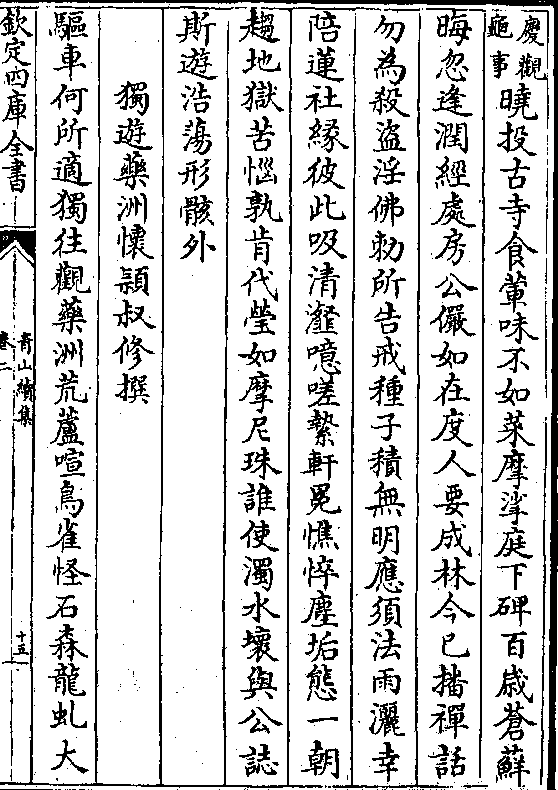 慶觀
龜事
曉投古寺食葷味不如菜摩挲庭下碑百歲蒼蘚
晦忽逢潤經處房公儼如在度人要成林今已播禪話
勿為殺盜淫佛勅所告戒種子積無明應須法雨灑幸
陪蓮社緣彼此吸清瀣噫嗟縶軒冕憔悴塵垢態一朝
趨地獄苦惱孰肯代瑩如摩尼珠誰使濁水壞與公誌
斯遊浩蕩形骸外
獨遊藥洲懷頴叔修撰
驅車何所適獨往觀藥洲荒蘆喧鳥雀怪石森龍虬大
欽定四庫全書
青山續集
卷二
十五